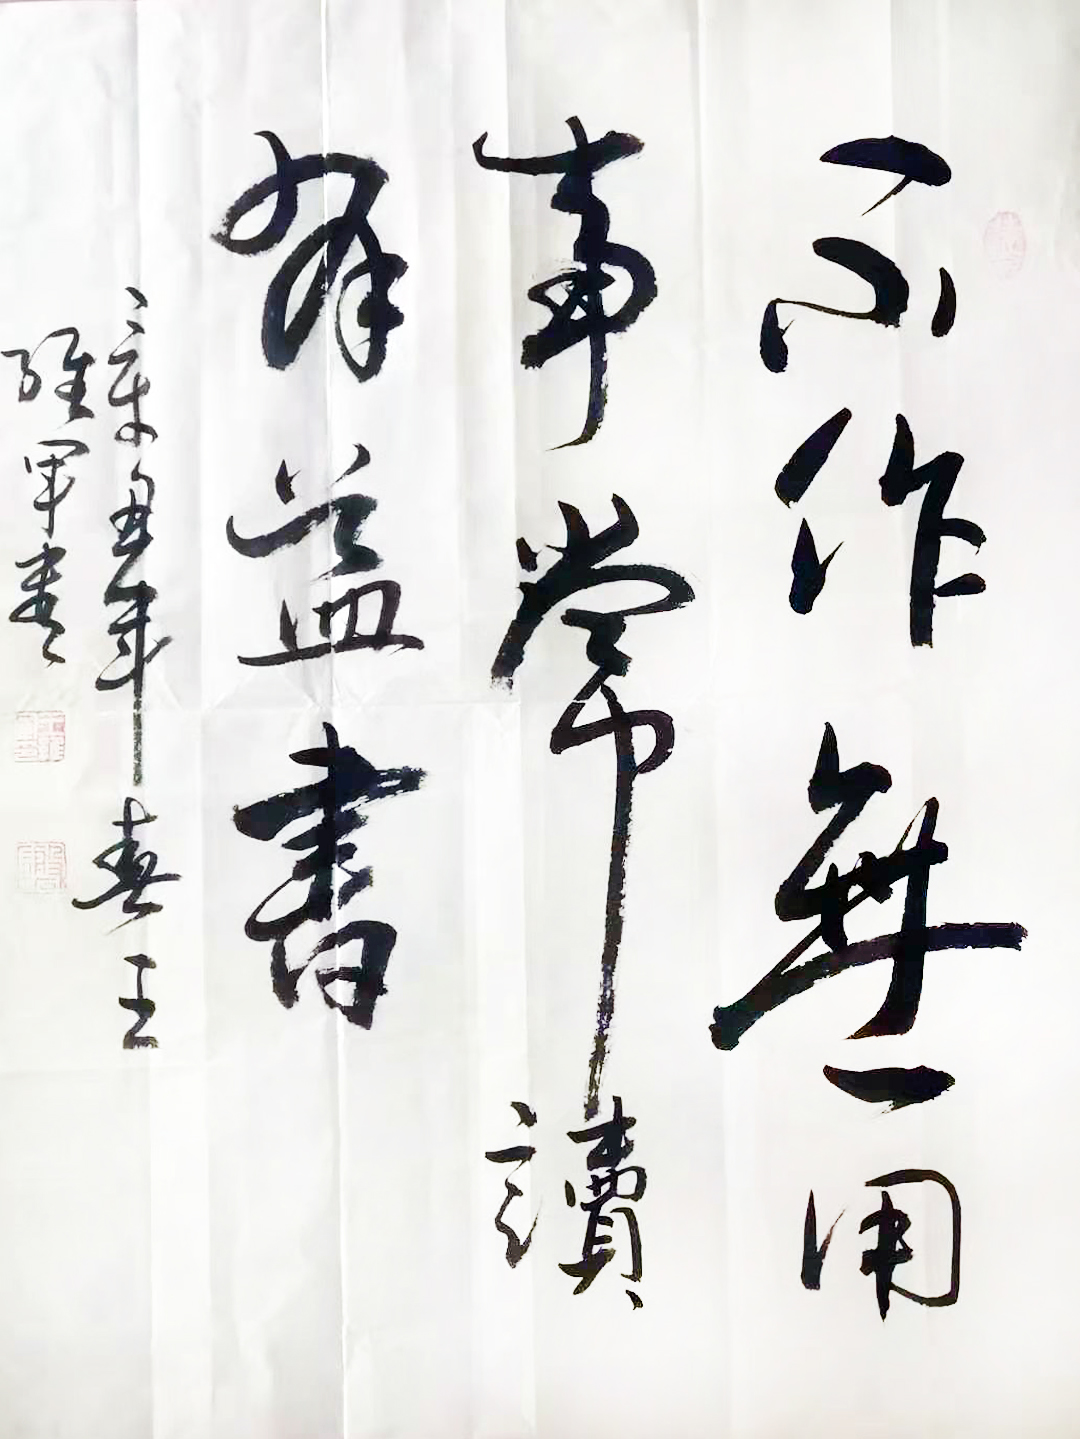 不作無一用
事常讀
有益書
辛丑年春王
維軍書